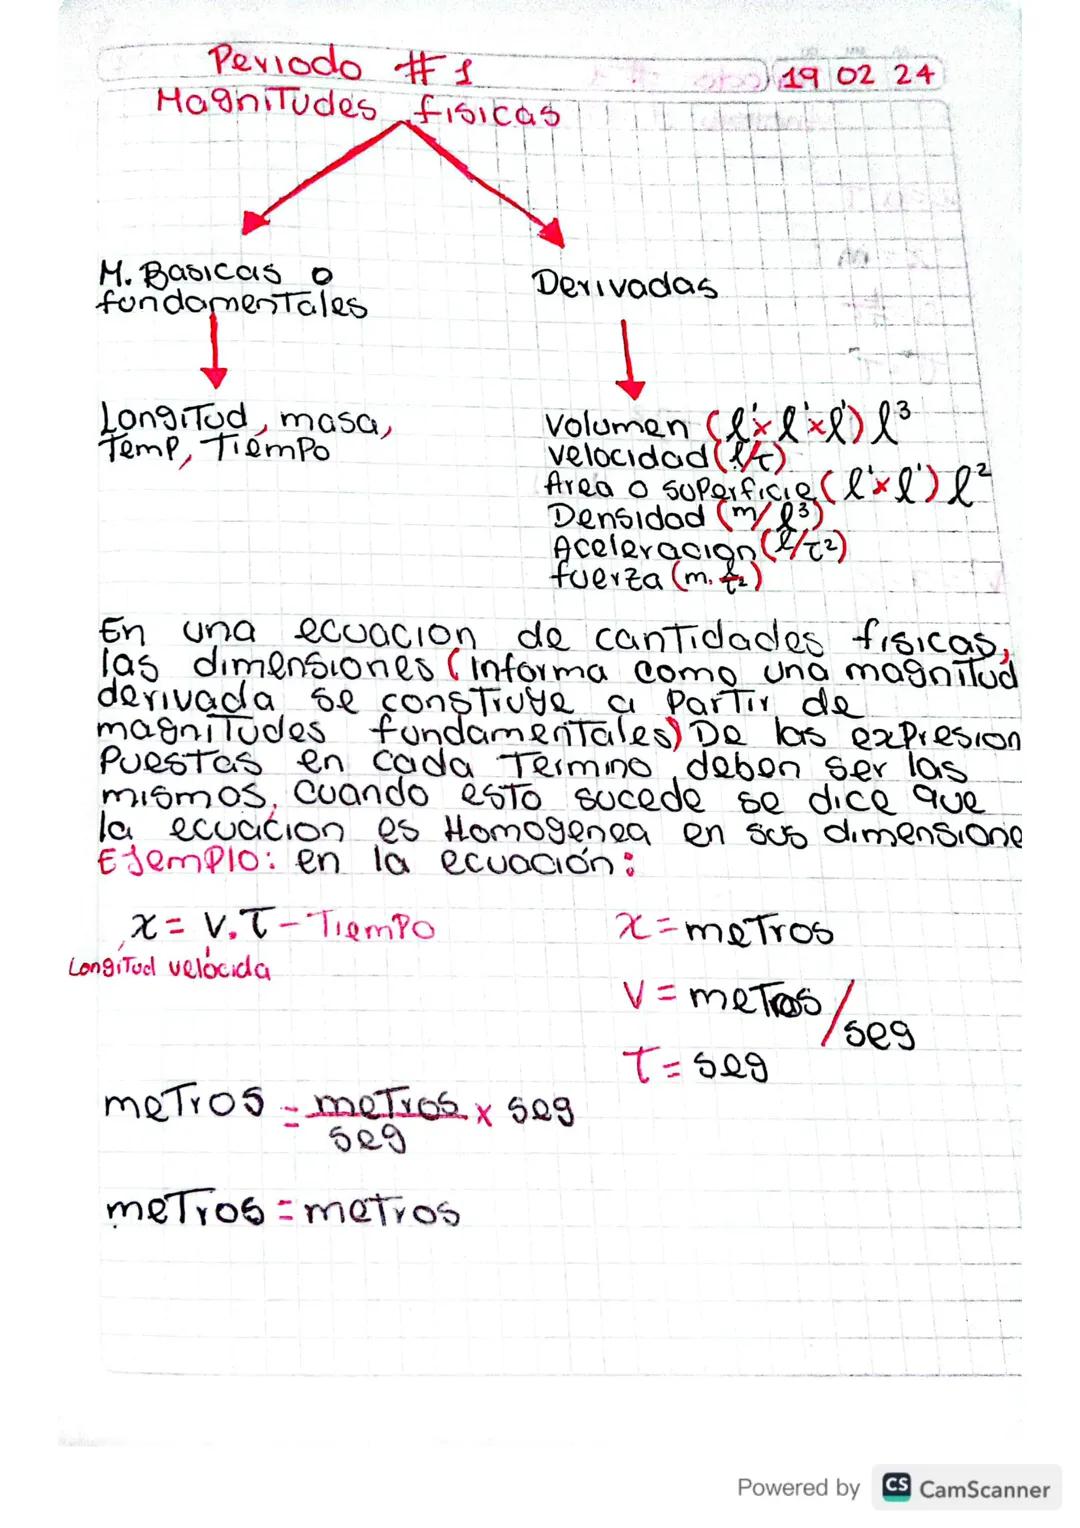 Periodo #1
19 02 24
Magnitudes fisicas
M. Basicas o
fundamentales
Derivadas
Longitud, masa,
Temp, Tiempo
Volumen (l¹×l¹×l¹) l³
velocidad (l/t)
Area o superficie (l¹×l¹) l²
Densidad (m/l³)
Aceleracion (l/t²)
fuerza (m. l/t²)
En una ecuacion de cantidades fisicas,
las dimensiones (informa como una magnitud
derivada se construye a partir de
magnitudes fundamentales) De las expresion
Puestas en cada Termino deben ser las
mismos. Cuando esto sucede se dice que
la ecuacion es Homogenea en sus dimensione
Ejemplo: en la ecuación:
x = v.t - Tiempo
Longitud velocida
x = metros
v = metros/seg
t = seg
metros = metros/seg × seg
metros = metros
Powered by CS CamScanner